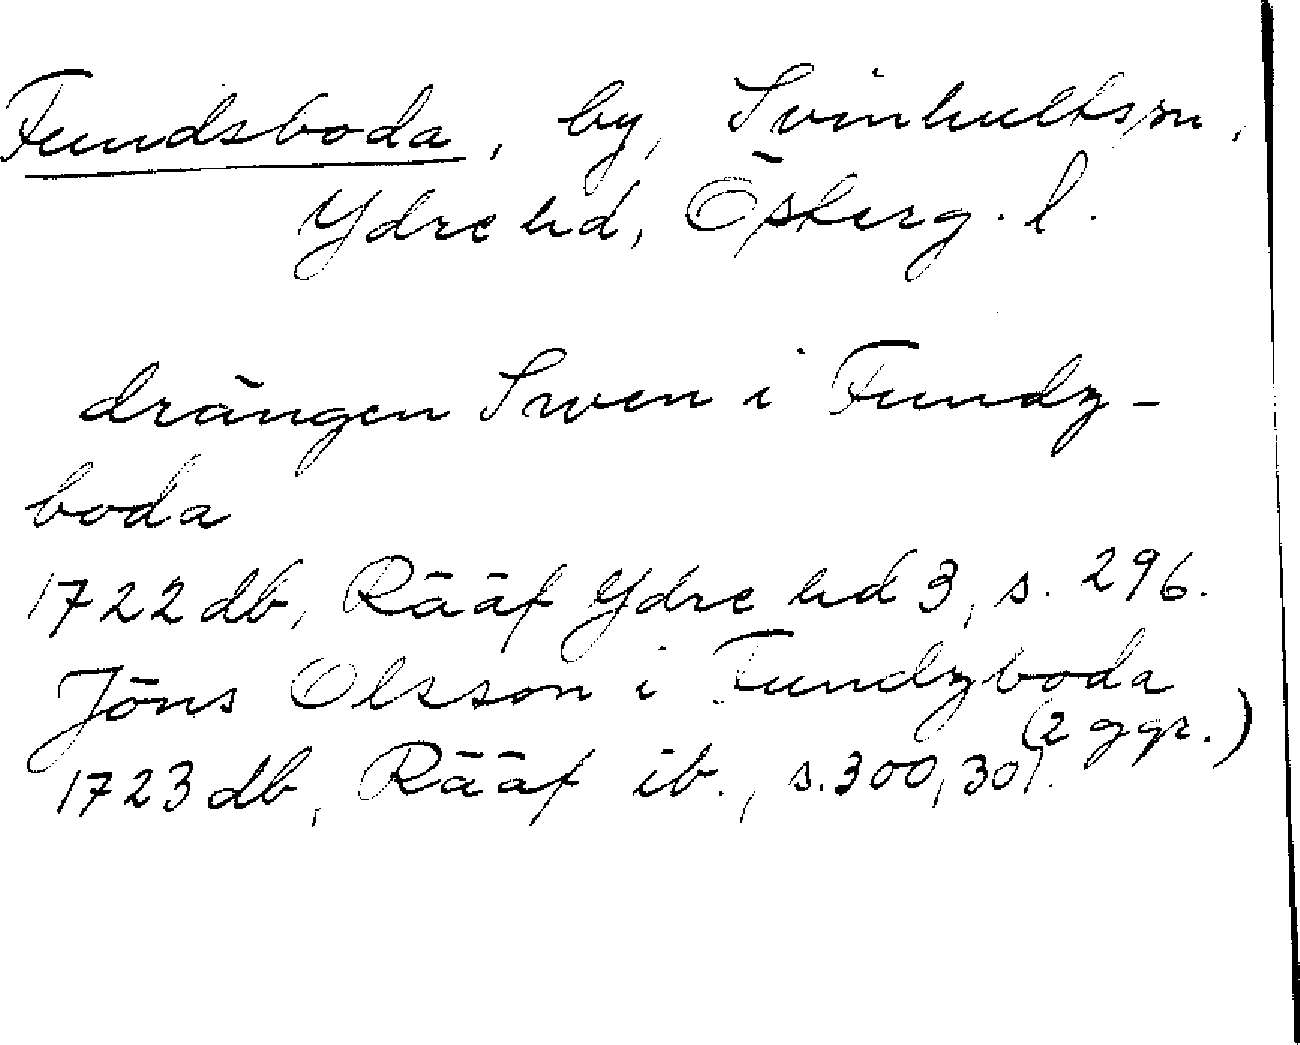 Fundsboda, by, Svinhultssn,
Ydre hd, Österg. l.
drängen Swen i Fundz-
boda
1722 db, Rääf Ydre hd 3, s. 296.
Jöns Olsson i Fundzboda
(2 ggr.)
1723 db, Rääf ib., s. 300, 301.